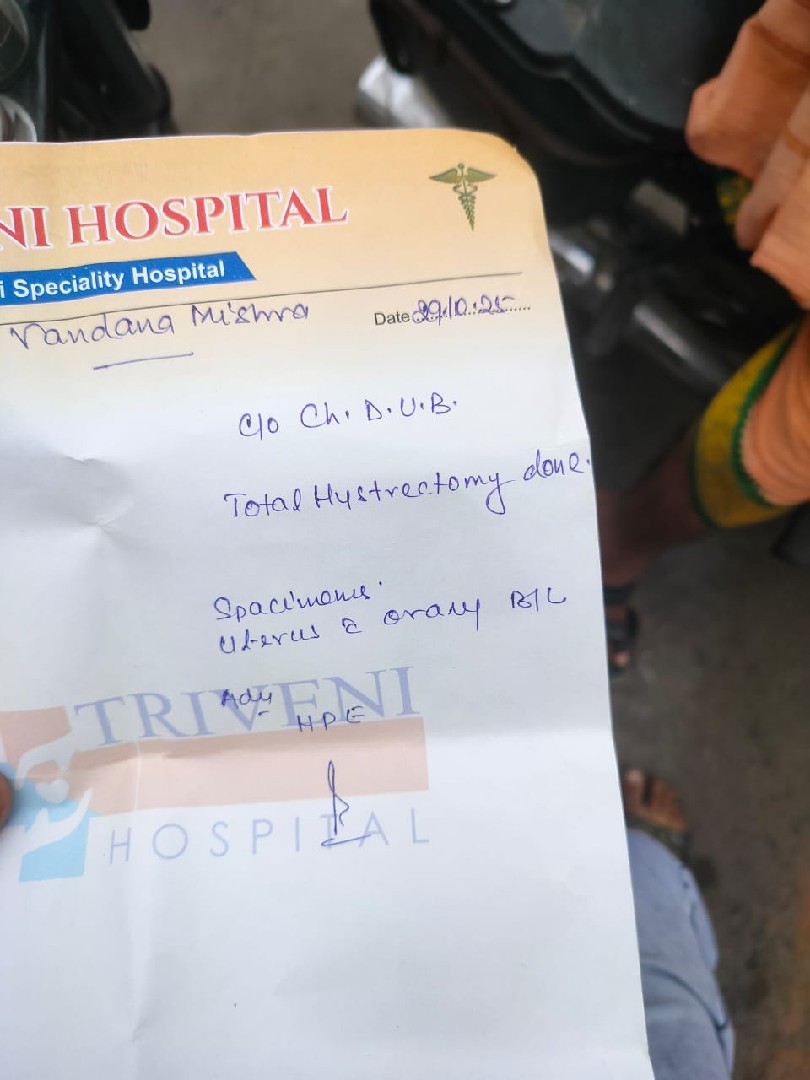 NI HOSPITAL
i Speciality Hospital
Vandana Mishra
Date 29.10.25
C/o Ch. D.U.B.
Total Hystrectomy done.
Spacimens.
Uterus c̄ ovary B/L
Adv
HPE
TRIVENI
HOSPITAL